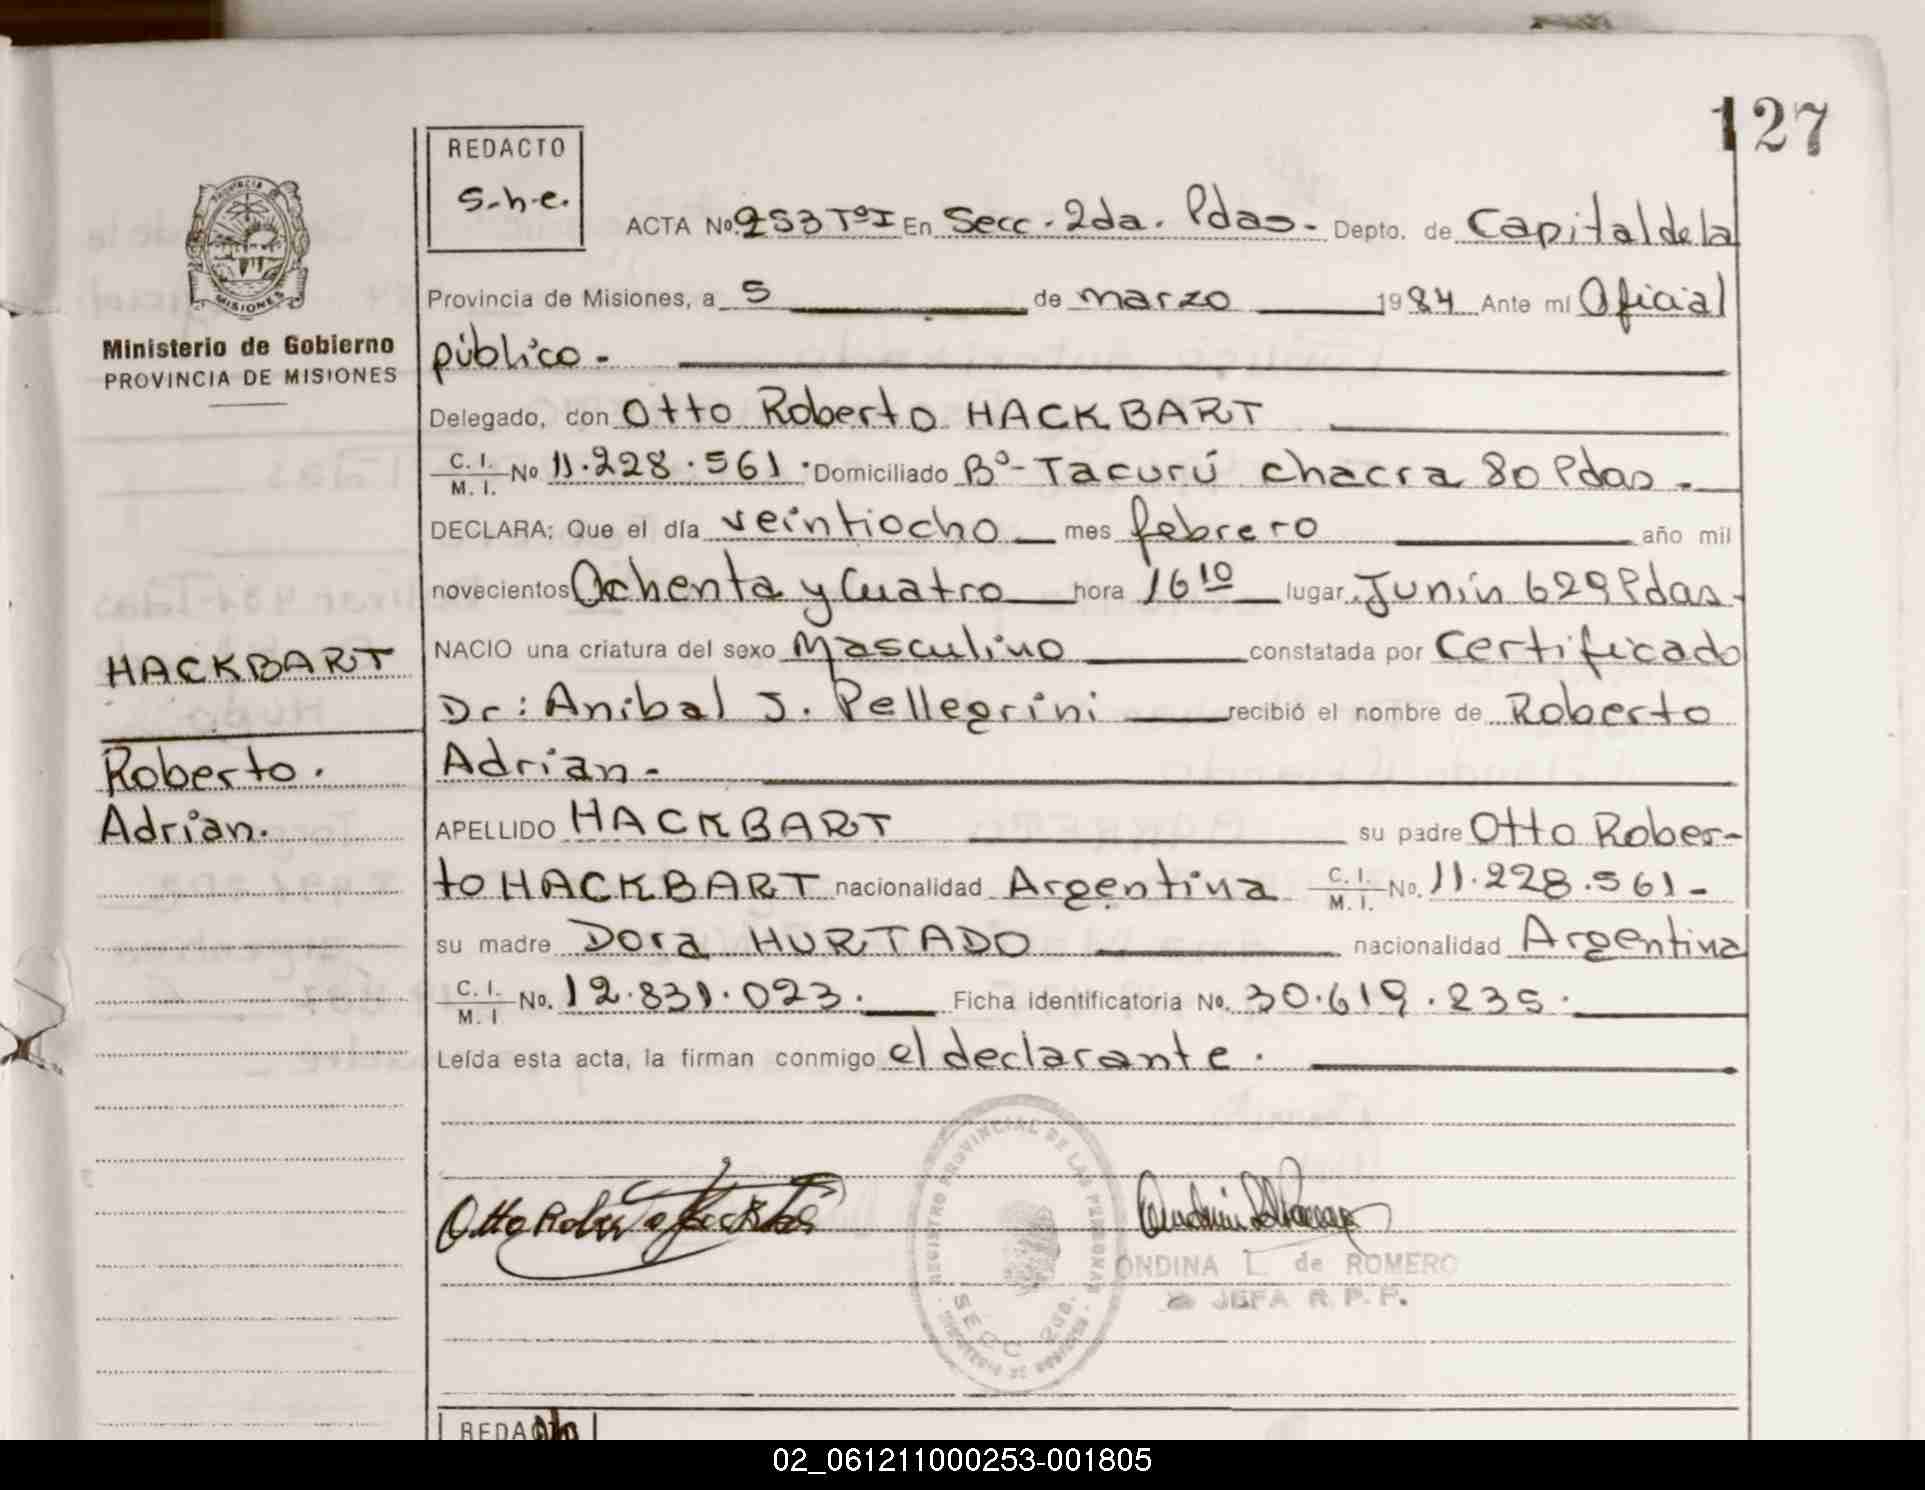 127
REDACTO
S.h.e.
PROVINCIA
MISIONES
Ministerio de Gobierno
PROVINCIA DE MISIONES
ACTA Nº 253 TºI En Secc. 2da. Pdas. Depto. de Capital de la
Provincia de Misiones, a 5 de marzo 1984 Ante mí Oficial
público.
Delegado, con Otto Roberto HACKBART
C. I. M. I. Nº 11.228.561. Domiciliado Bº- Tacurú chacra 80 Pdas.
DECLARA: Que el día veintiocho mes febrero año mil
novecientos Ochenta y Cuatro hora 16 10 lugar Junín 629 Pdas.
NACIO una criatura del sexo Masculino constatada por Certificado
Dr: Anibal J. Pellegrini recibió el nombre de Roberto
Adrian.
APELLIDO HACKBART su padre Otto Rober-
to HACKBART nacionalidad Argentina C. I. M. I. No. 11.228.561-
su madre Dora HURTADO nacionalidad Argentina
C. I. M. I No. 12.831.023. Ficha identificatoria No. 30.619.235.
Leída esta acta, la firman conmigo el declarante.
HACKBART
Roberto.
Adrian.
Otto Roberto Hackbart
REGISTRO PROVINCIAL DE LAS PERSONAS
SECC 2da.
ONDINA L. de ROMERO
JEFA R. P. P.
REDACTO
02_061211000253-001805